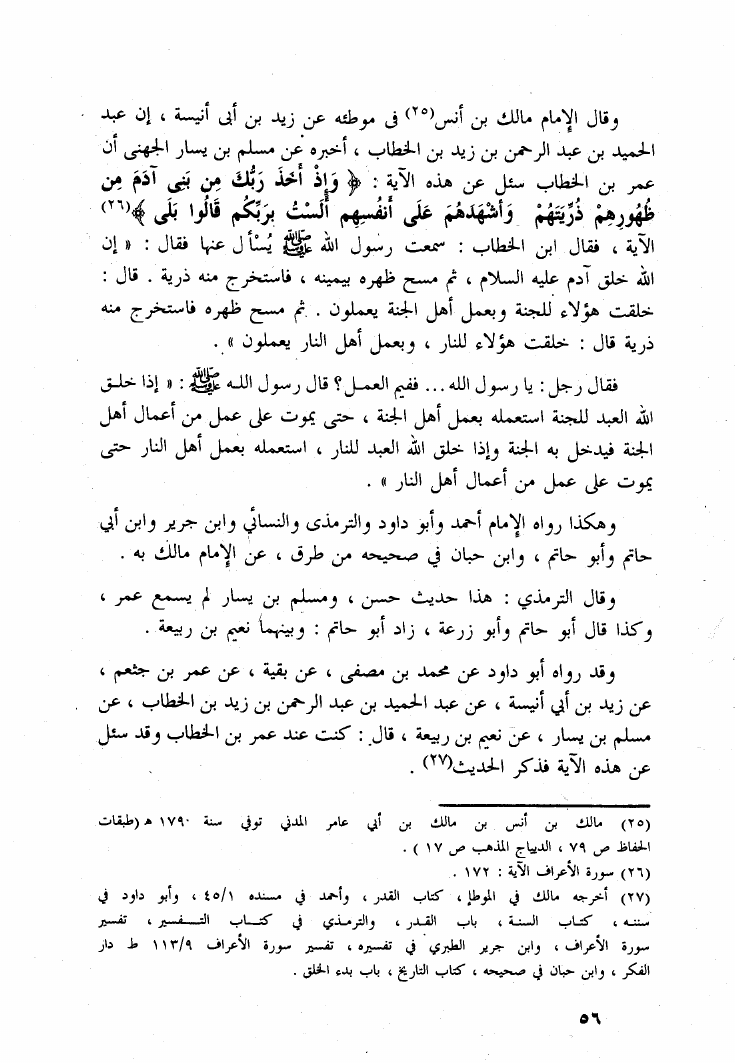 وقال الإمام مالك بن أنس(٢٥) فى موطئه عن زيد بن أبى أنيسة ، إن عبد
الحميد بن عبد الرحمن بن زيد بن الخطاب ، أخبره عن مسلم بن يسار الجهنى أن
عمر بن الخطاب سئل عن هذه الآية : ﴿ وَإِذْ أَخَذَ رَبُّكَ مِن بَنِى آدَمَ مِن
ظُهُورِهِمْ ذُرِّيَتَهُمْ وَأَشْهَدَهُمَ عَلَى أَنفُسِهِم أَلَسْتُ بِرَبِّكُم قَالُوا بَلَى ﴾(٢٦)
الآية ، فقال ابن الخطاب : سمعت رسول الله ﷺ يُسْأل عنها فقال : « إن
الله خلق آدم عليه السلام ، ثم مسح ظهره بيمينه ، فاستخرج منه ذرية . قال :
خلقت هؤلاء للجنة وبعمل أهل الجنة يعملون . ثم مسح ظهره فاستخرج منه
ذرية قال : خلقت هؤلاء للنار ، وبعمل أهل النار يعملون » .
فقال رجل : يا رسول الله ... ففيم العمل ؟ قال رسول الله ﷺ : « إذا خلق
الله العبد للجنة استعمله بعمل أهل الجنة ، حتى يموت على عمل من أعمال أهل
الجنة فيدخل به الجنة وإذا خلق الله العبد للنار ، استعمله بعمل أهل النار حتى
يموت على عمل من أعمال أهل النار » .
وهكذا رواه الإمام أحمد وأبو داود والترمذى والنسائي وابن جرير وابن أبي
حاتم وأبو حاتم ، وابن حبان في صحيحه من طرق ، عن الإمام مالك به .
وقال الترمذي : هذا حديث حسن ، ومسلم بن يسار لم يسمع عمر ،
وكذا قال أبو حاتم وأبو زرعة ، زاد أبو حاتم : وبينهما نعيم بن ربيعة .
وقد رواه أبو داود عن محمد بن مصفى ، عن بقية ، عن عمر بن جثعم ،
عن زيد بن أبي أنيسة ، عن عبد الحميد بن عبد الرحمن بن زيد بن الخطاب ، عن
مسلم بن يسار ، عن نعيم بن ربيعة ، قال : كنت عند عمر بن الخطاب وقد سئل
عن هذه الآية فذكر الحديث(٢٧) .
(٢٥) مالك بن أنس بن مالك بن أبي عامر المدني توفي سنة ١٧٩٠ هـ (طبقات
الحفاظ ص ٧٩ ، الديباج المذهب ص ١٧ ) .
(٢٦) سورة الأعراف الآية : ١٧٢ .
(٢٧) أخرجه مالك في الموطإ ، كتاب القدر ، وأحمد في مسنده ٤٥/١ ، وأبو داود في
سننه ، كتاب السنة ، باب القدر ، والترمذي في كتاب التفسير ، تفسير
سورة الأعراف ، وابن جرير الطبري في تفسيره ، تفسير سورة الأعراف ١١٣/٩ ط دار
الفكر ، وابن حبان في صحيحه ، كتاب التاريخ ، باب بدء الخلق .
٥٦